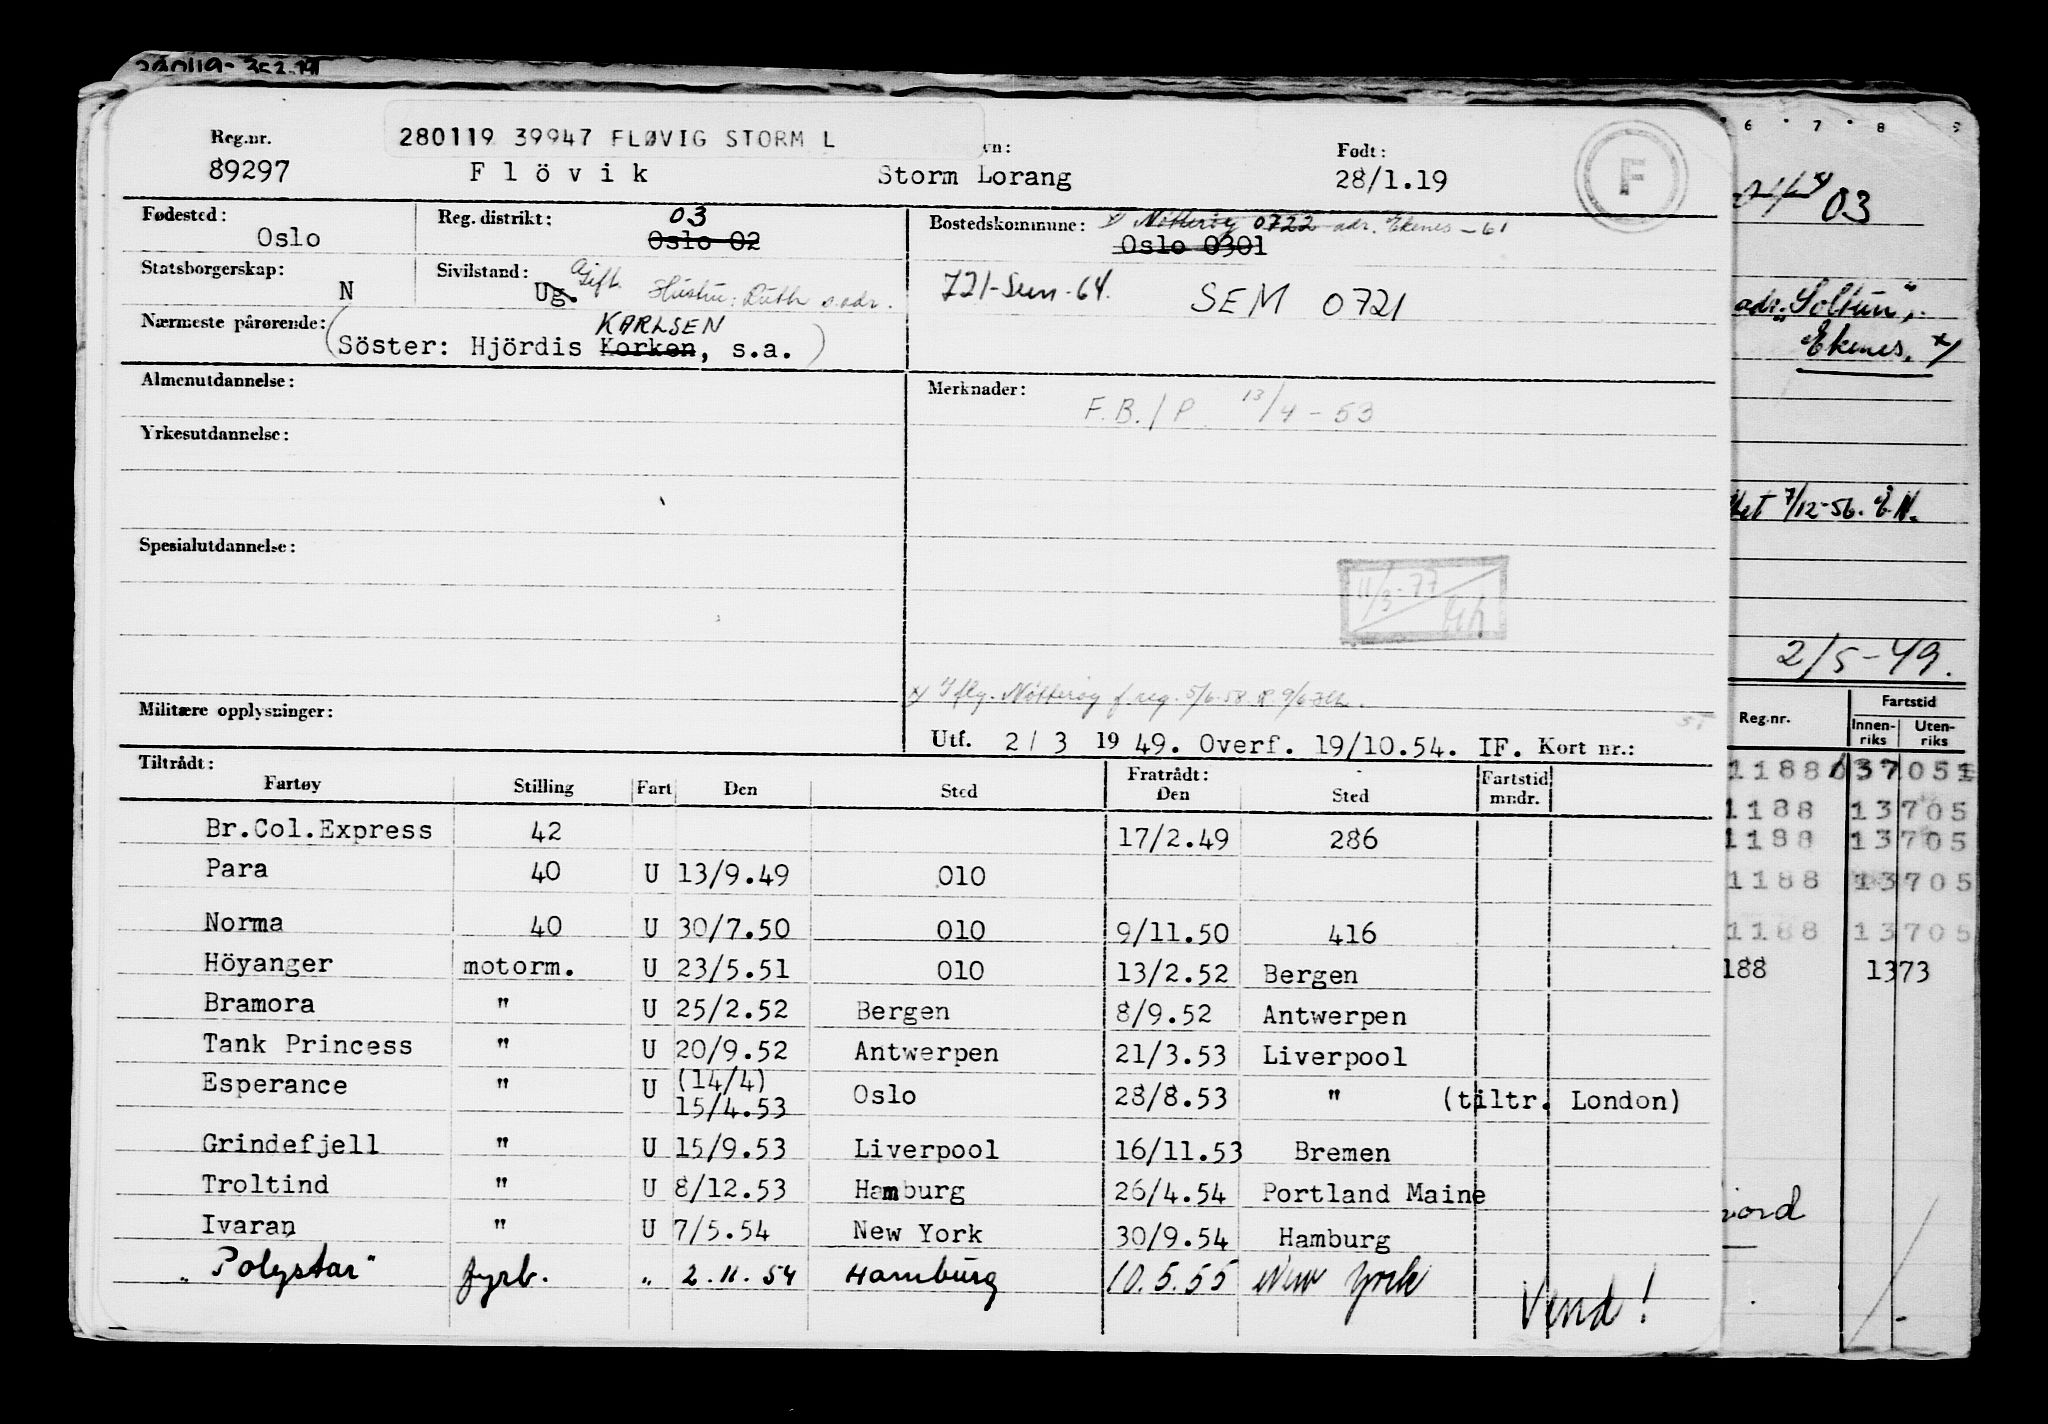 Reg.nr. 280119 39947 FLØVIG STORM L Født:
89297 Flövik Storm Lorang 28/1.19 F
Fødested: Oslo Reg. distrikt: 03 Oslo 02 Bostedskommune: x) Nøtterøy 0722 adr. Ekenes - 61
Oslo 0301
Statsborgerskap: N Sivilstand: Ug. Gift. Hustru: Ruth s.adr. 721-Sem-64. SEM 0721
Nærmeste pårørende: KARLSEN
(Söster: Hjördis Korken, s.a.)
Almenutdannelse: Merknader: F.B./P. 13/4-53
Yrkesutdannelse:
Spesialutdannelse:
11/3-77
x Iflg. Nøtterøy f.reg. 5/6.58
Militære opplysninger: Utf. 2/3 1949. Overf. 19/10.54. IF. Kort nr.:
Tiltrådt: Fratrådt: Fartstid
Fartøy Stilling Fart Den Sted Den Sted mndr.
Br.Col.Express 42 17/2.49 286
Para 40 U 13/9.49 010
Norma 40 U 30/7.50 010 9/11.50 416
Höyanger motorm. U 23/5.51 010 13/2.52 Bergen
Bramora " U 25/2.52 Bergen 8/9.52 Antwerpen
Tank Princess " U 20/9.52 Antwerpen 21/3.53 Liverpool
Esperance " U (14/4) 15/4.53 Oslo 28/8.53 " (tiltr. London)
Grindefjell " U 15/9.53 Liverpool 16/11.53 Bremen
Troltind " U 8/12.53 Hamburg 26/4.54 Portland Maine
Ivaran " U 7/5.54 New York 30/9.54 Hamburg
"Polystar" fyrb. " 2.11.54 Hamburg 10.5.55 New York
Vend!
6 7 8 9
03
adr. "Soltun",
Ekenes. x)
7/12-56. E.N.
2/5-49.
Reg.nr. Fartstid
Innen-riks Uten-riks
1188 13705
1188 13705
1188 13705
1188 13705
188 1373